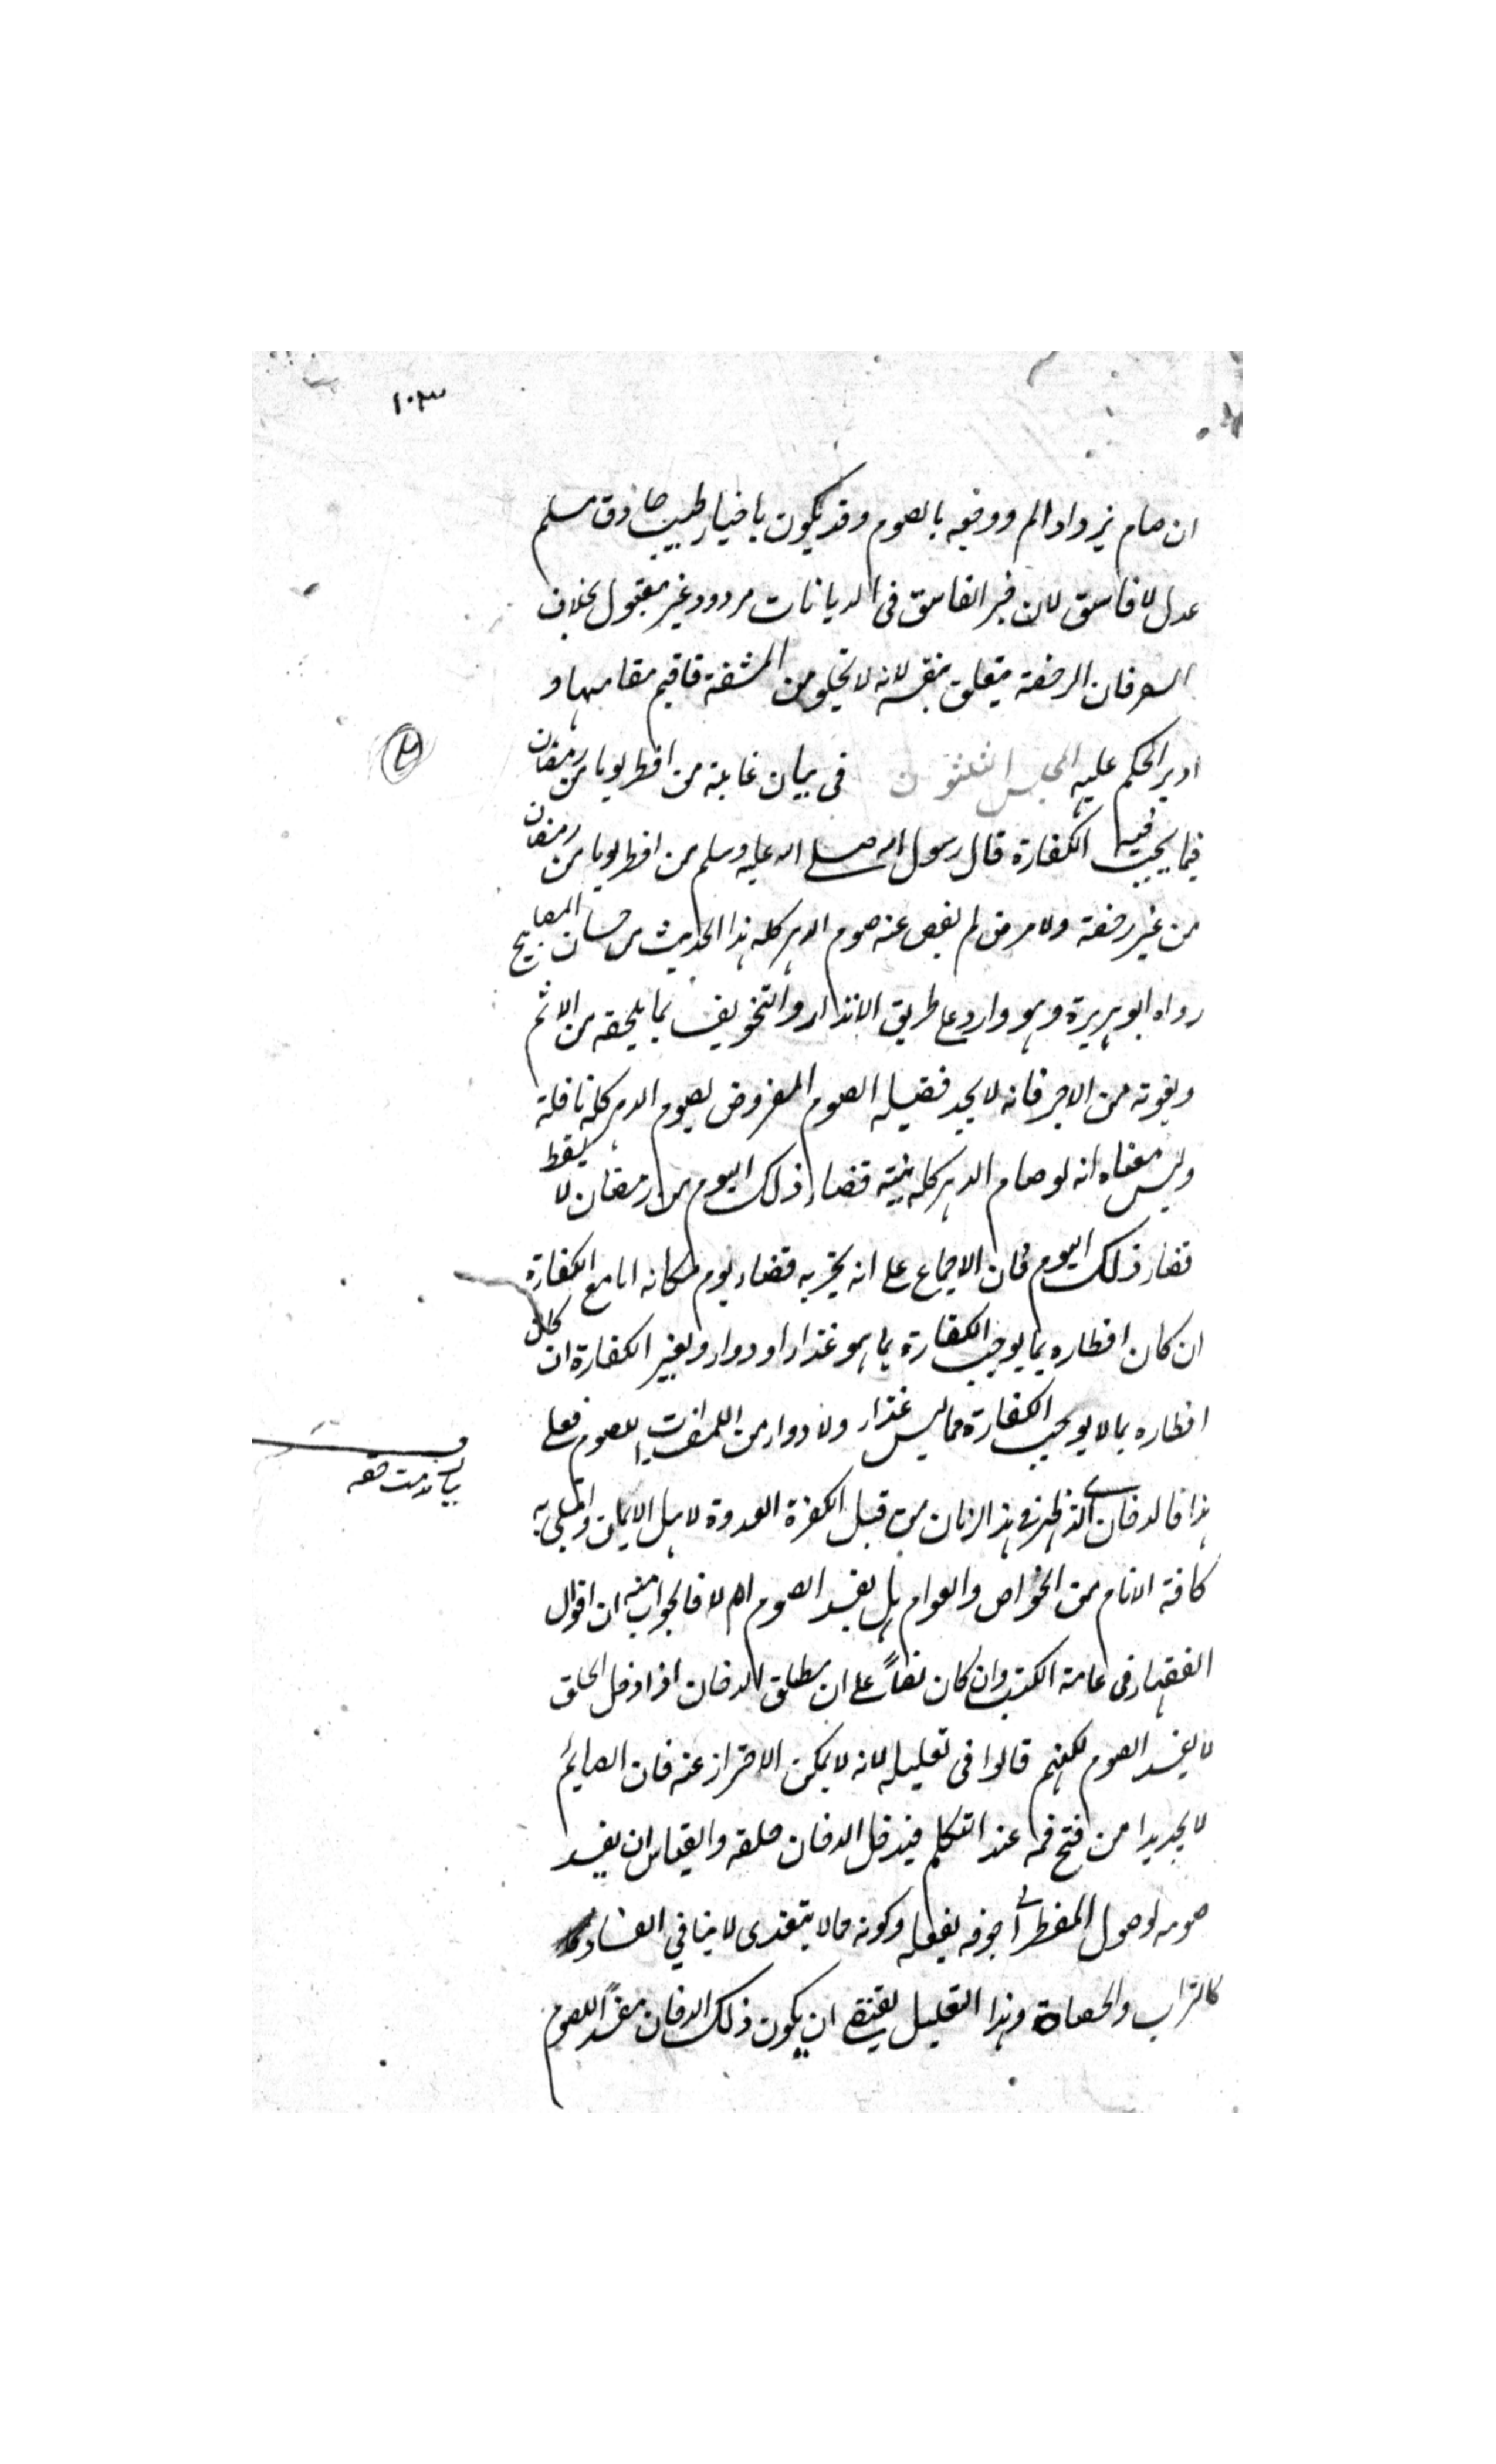 ١٠٣
ان صام يزداد الم ووجعه بالصوم وقد يكون باخبار طبيب حاذق مسلم
عدل لا فاسق لان خبر الفاسق فى الديانات مردود غير مقبول بخلاف
السفر فان الرخصة يتعلق بنفسه لانه لا يخلو من المشقة فاقيم مقامها و
ادير الحكم عليه المجلس الثلثون فى بيان غايلة من افطر يوما من رمضان
فيما يجب فيه الكفارة قال رسول الله صلى الله عليه وسلم من افطر يوما من رمضان
من غير رخصة ولا مرض لم يقض عنه صوم الدهر كله هذا الحديث من حسان المصابيح
رواه ابو هريرة وهو وارد على طريق الانذار والتخويف بما يلحقه من الاثم
ويفوته من الاجر فانه لا يجد فضيله الصوم المفروض بصوم الدهر كله نافلة
وليس معناه انه لو صام الدهر كله بنيته قضاء ذلك اليوم من رمضان لا يسقط
قضاء ذلك اليوم فان الاجماع على انه يجزيه قضاء يوم مكانه اما مع الكفارة
ان كان افطاره بما يوجب الكفارة بما هو غذاء او دواء وبغير الكفارة ان كان
افطاره بما لا يوجب الكفارة مما ليس غذاء ولا دواء من المفطرات للصوم فعلى
هذا فالدخان الذى ظهر فى هذا الزمان من قبل الكفرة العدوة لاهل الايمان وابتلى به
كافة الانام من الخواص والعوام هل يفسد الصوم ام لا فالجواب منه ان اقوال
الفقهاء فى عامة الكتب وان كان نصاً على ان مطلق الدخان اذا دخل الحلق
لا يفسد الصوم لكنهم قالوا فى تعليله لانه لا يمكن الاحتراز عنه فان الصايم
لا يجد بدا من فتح فمه عند التكلم فيدخل الدخان حلقه والقياس ان يفسد
صومه لوصول المفطر الى جوفه بفعله وكونه مما لا يتغذى لا ينافي الفساد
كالتراب والحصاة وهذا التعليل يقتضى ان يكون ذلك الدخان مفسداً للصوم
بيان مذمت حقه